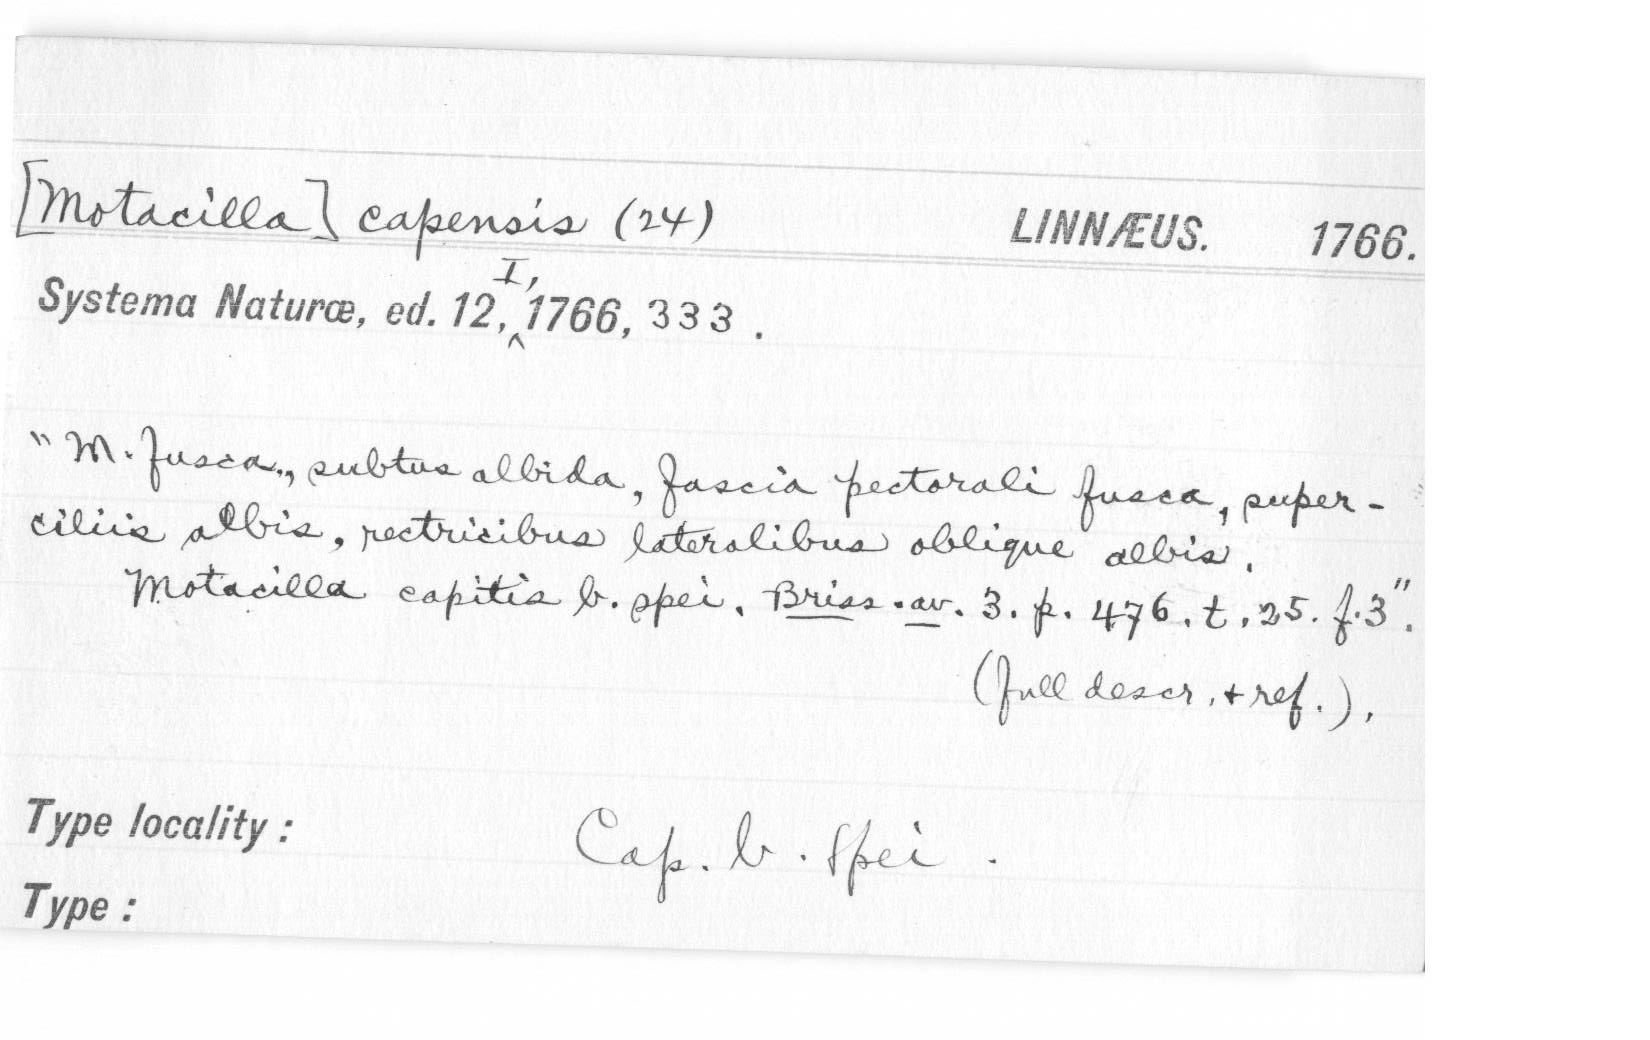 [Motacilla] capensis (24) LINNÆUS. 1766.
Systema Naturæ, ed. 12, I, 1766, 333.
"M. fusca, subtus albida, fascia pectorali fusca, super-
ciliis albis, rectricibus lateralibus oblique albis.
Motacilla capitis b. spei. Briss. av. 3. p. 476. t. 25. f. 3".
(full descr. + ref.).
Type locality: Cap. b. Spei.
Type: